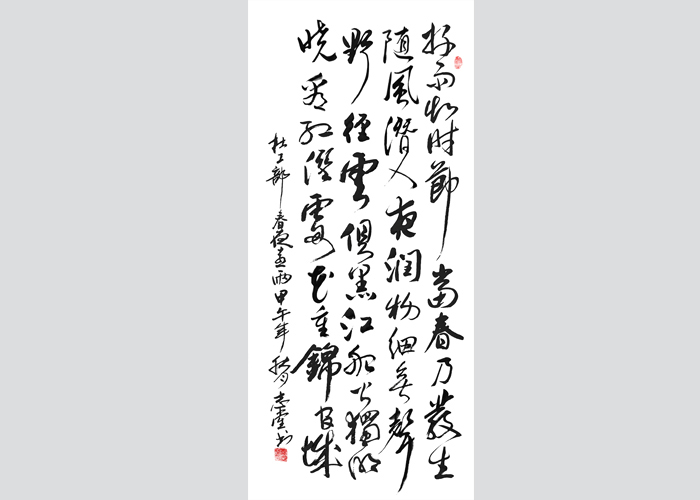 好雨知时節當春乃發生
随風潛入夜润物细无聲
野徑雲俱黑江船火獨明
晓看红濕處花重錦官城
杜工部春夜喜雨甲午年秋月志书